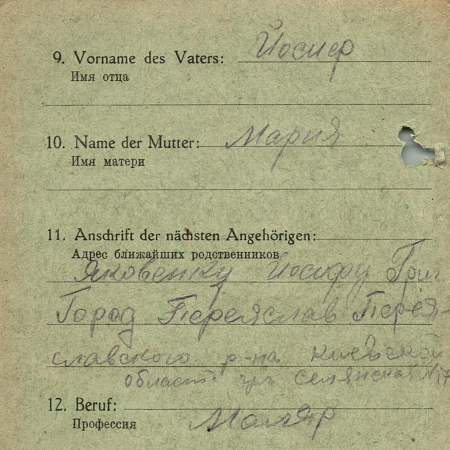 9. Vorname des Vaters: Йосиф
Имя отца
10. Name der Mutter: Мария
Имя матери
11. Anschrift der nächsten Angehörigen:
Адрес ближайших родственников
Яковенку Иосифу Григ
Город Переяслав Перея-
славского р-на Киевской
область ул Селянская №17
12. Beruf: Маляр
Профессия